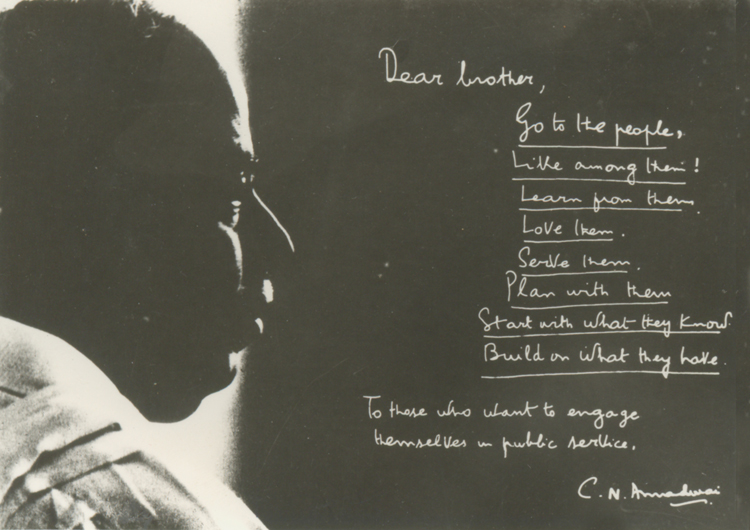 Dear brother,
Go to the people,
Live among them!
Learn from them.
Love them.
Serve them.
Plan with them
Start with what they know
Build on what they have.
To those who want to engage
themselves in public service.
C. N. Annadurai